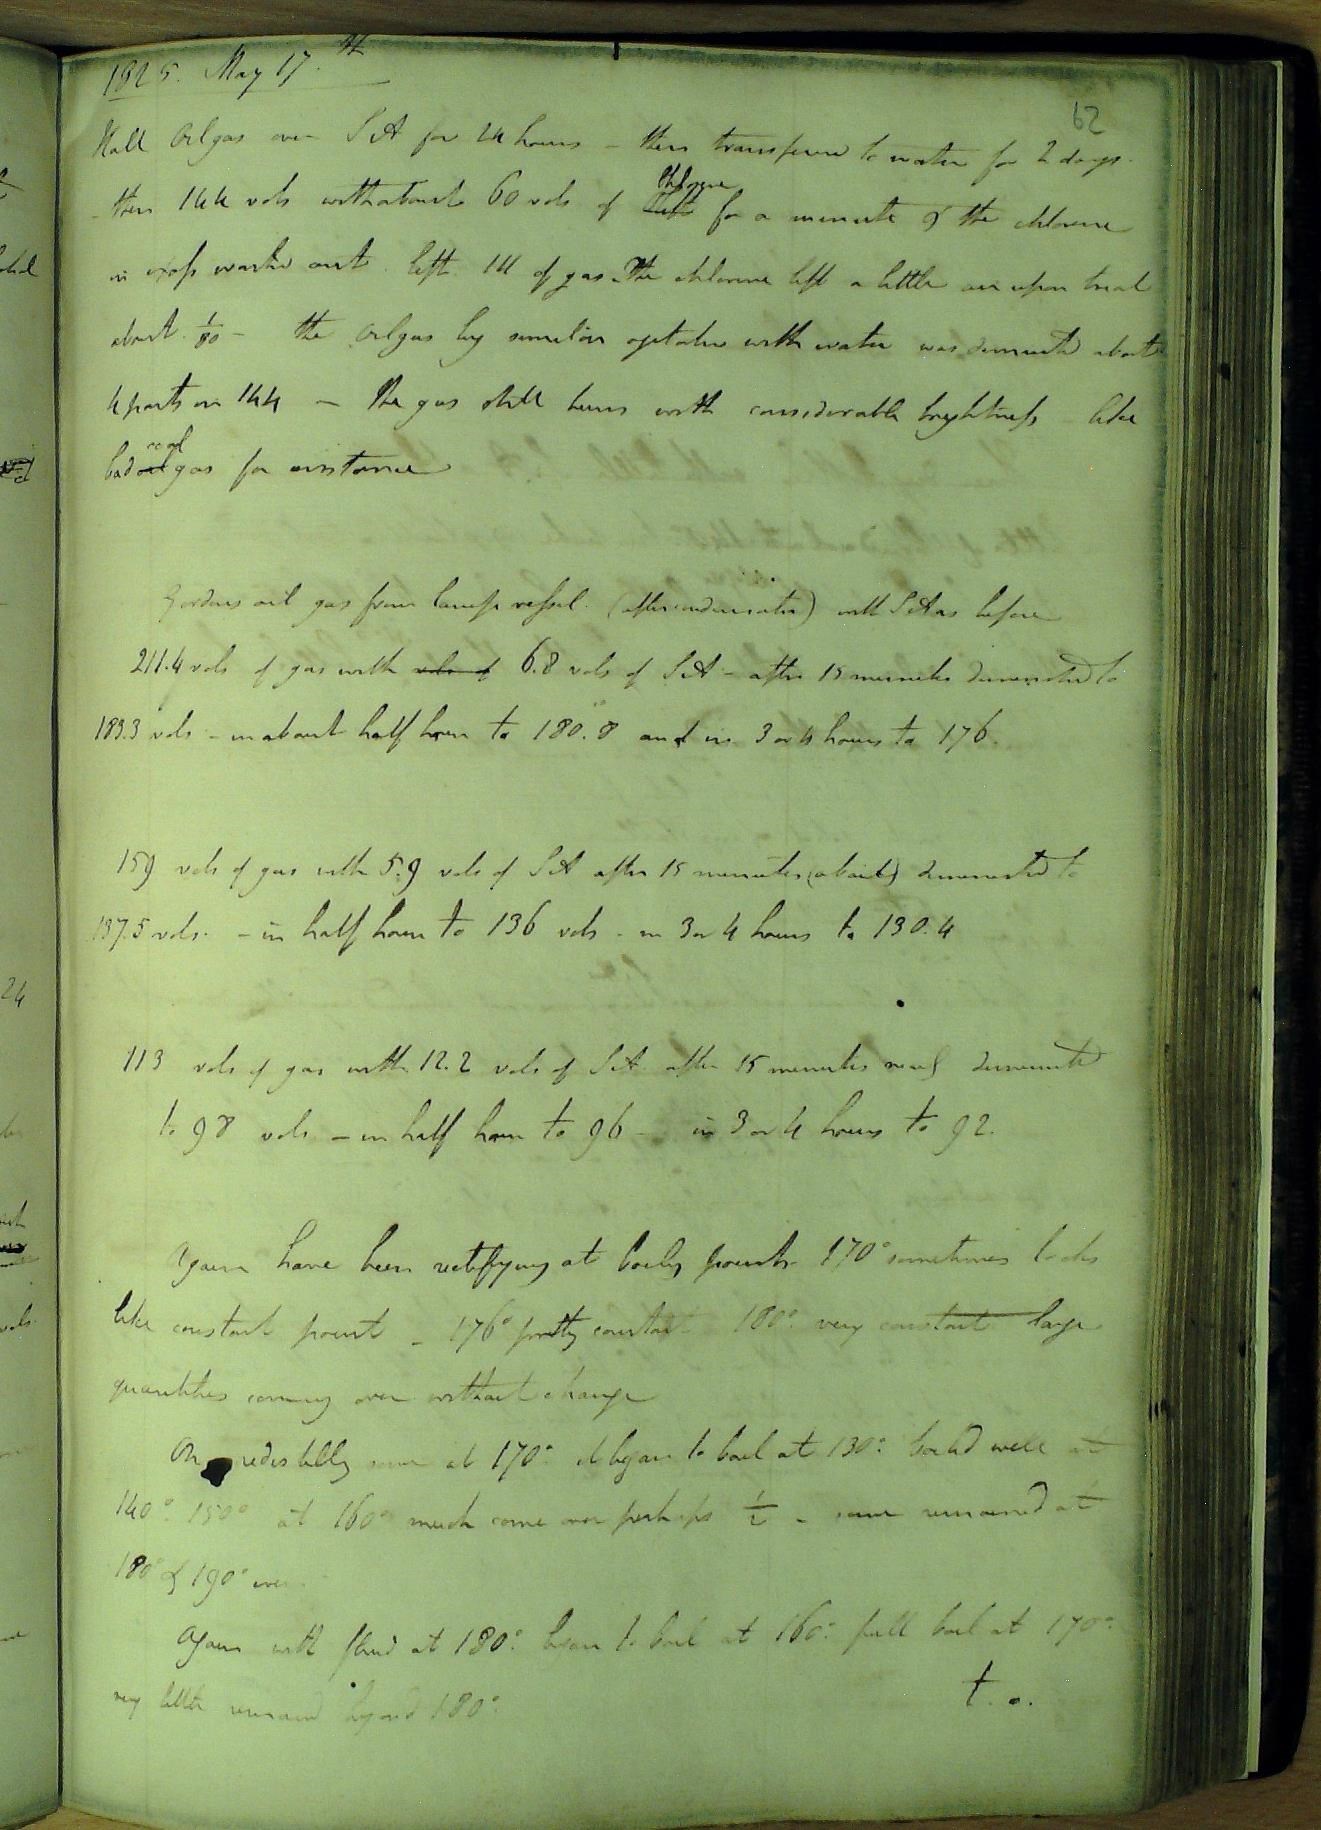 1825. May 17.th
62
Oil gas over S A for 24 hours - then transferred to water for 2 days.
- then 144 vols with about 60 vols of Chlorine for a minute & the chlorine
in excess washed out. left 111 of gas. The chlorine left a little air upon trial
about 1/80 - the Oil gas by similar agitation with water was diminished about
4 parts in 144 - The gas still burns with considerable brightness - like
bad coal gas for instance
Gordons oil gas from lamp vessel. (after condensation) with S A as before
211.4 vols of gas with vols of 6.8 vols of S A - after 15 minutes diminished to
183.3 vols - in about half hour to 180.8 and in 3 or 4 hours to 176.
159 vols of gas with 5.9 vols of S A after 15 minutes (about) diminished to
137.5 vols. - in half hour to 136 vols - in 3 or 4 hours to 130.4
113 vols of gas with 12.2 vols of S A. after 15 minutes nearly diminished
to 98 vols - in half hour to 96 - in 3 or 4 hours to 92.
Again have been rectifying at boiling points. 170° sometimes looks
like constant point - 176° pretty constant 180° very constant large
quantities coming over without change
On redistilling some at 170° it began to boil at 130° boiled well at
140° 150° at 160° much came over perhaps 1/2 - some remained at
180° & 190° even.
Again with fluid at 180° began to boil at 160° full boil at 170°
very little remained beyond 180°.
t. o.